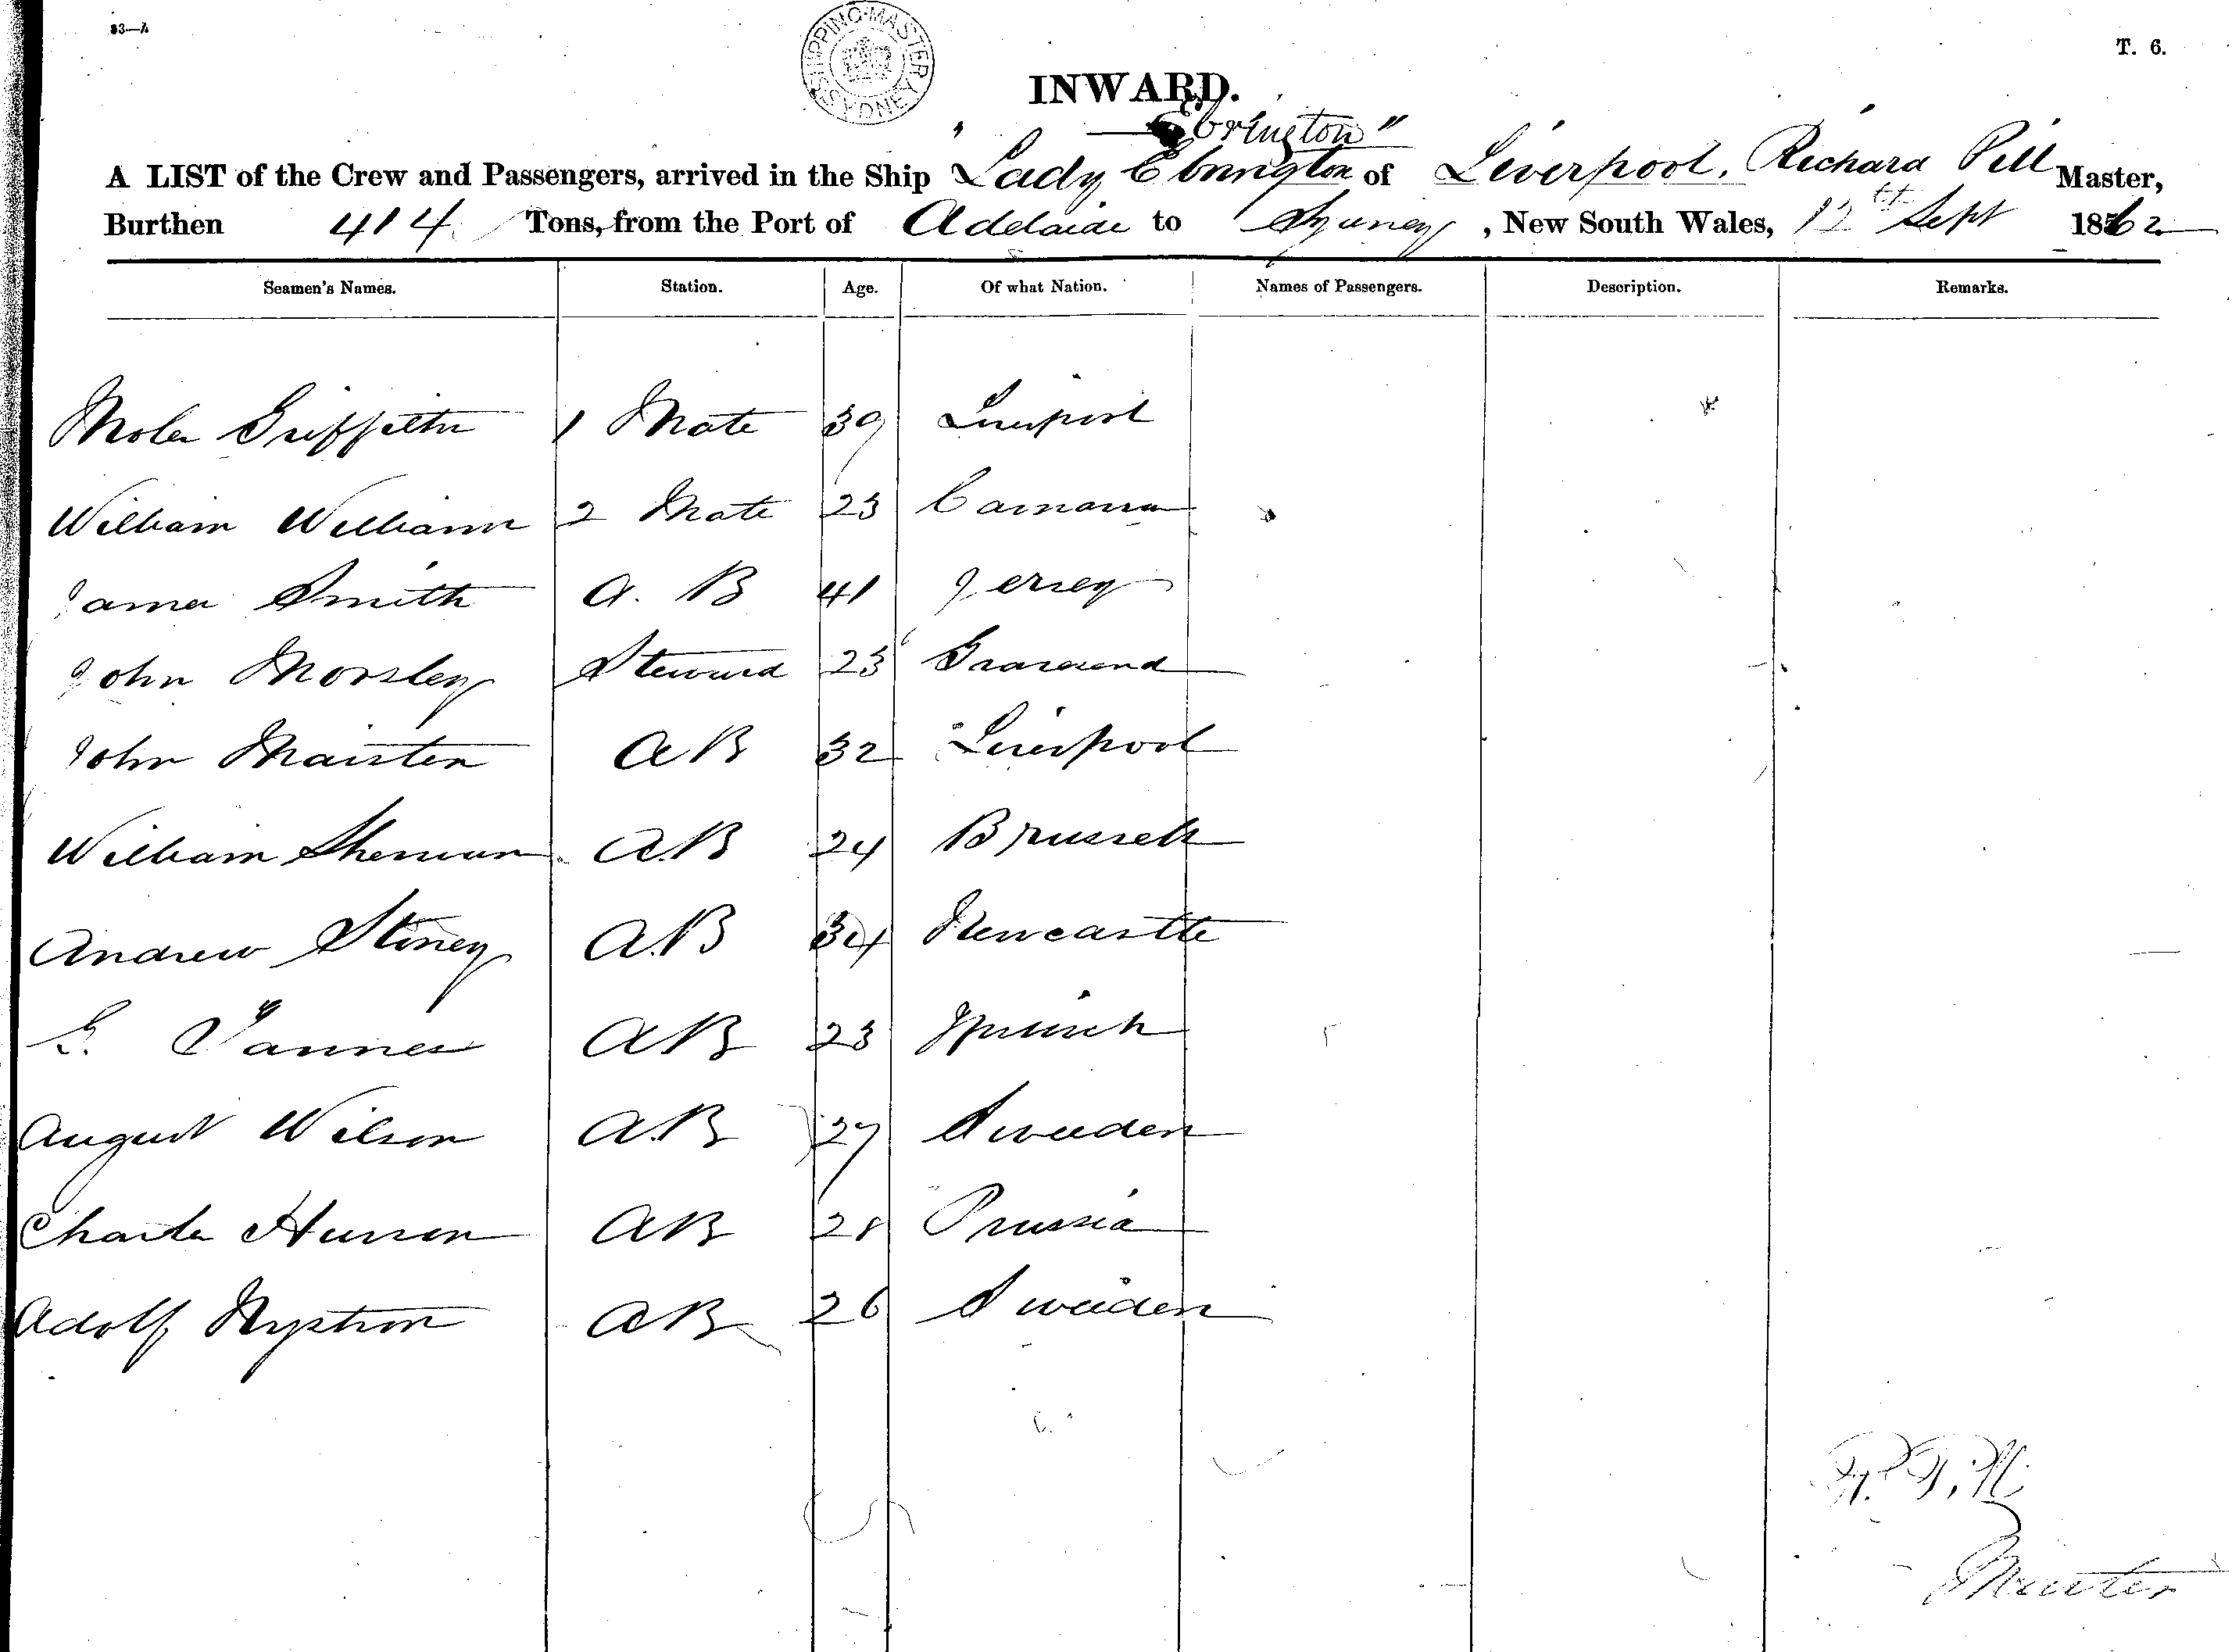 33—A
SHIPPING MASTER SYDNEY
T. 6.
INWARD.
Ebrington"
A LIST of the Crew and Passengers, arrived in the Ship Lady Ebrington of Liverpool, Richard Pill Master,
Burthen 414 Tons, from the Port of Adelaide to Sydney, New South Wales, 12th Sept 1862
Seamen's Names. Station. Age. Of what Nation. Names of Passengers. Description. Remarks.
Griffiths 1 Mate 39 Liverpool
William Williams 2 Mate 23 Carnarvon
James Smith A. B 41 Jersey
John Morsley Steward 23 Gravesend
John AB 32 Liverpool
William Sherman AB 24 Brussels
Andrew Stoney A.B 34 Newcastle
Tanner AB 23 Ipswich
August Wilson A.B 27 Sweeden
Charles AB 28 Prussia
Adolf Nystrom AB 26 Sweeden
Master